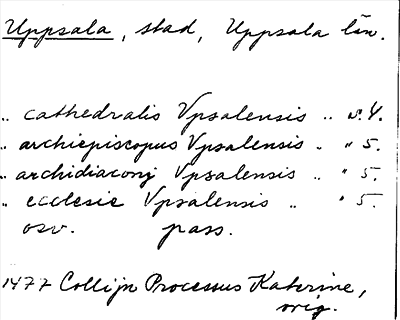 Uppsala, stad, Uppsala län.
.. cathedralis Vpsalensis .. s. 4.
.. archiepiscopus Vpsalensis . " 5.
.. archidiaconj Vpsalensis .. " 5.
.. ecclesie Vpsalensis .. " 5.
osv. pass.
1477 Collijn Processus Katerine,
orig.